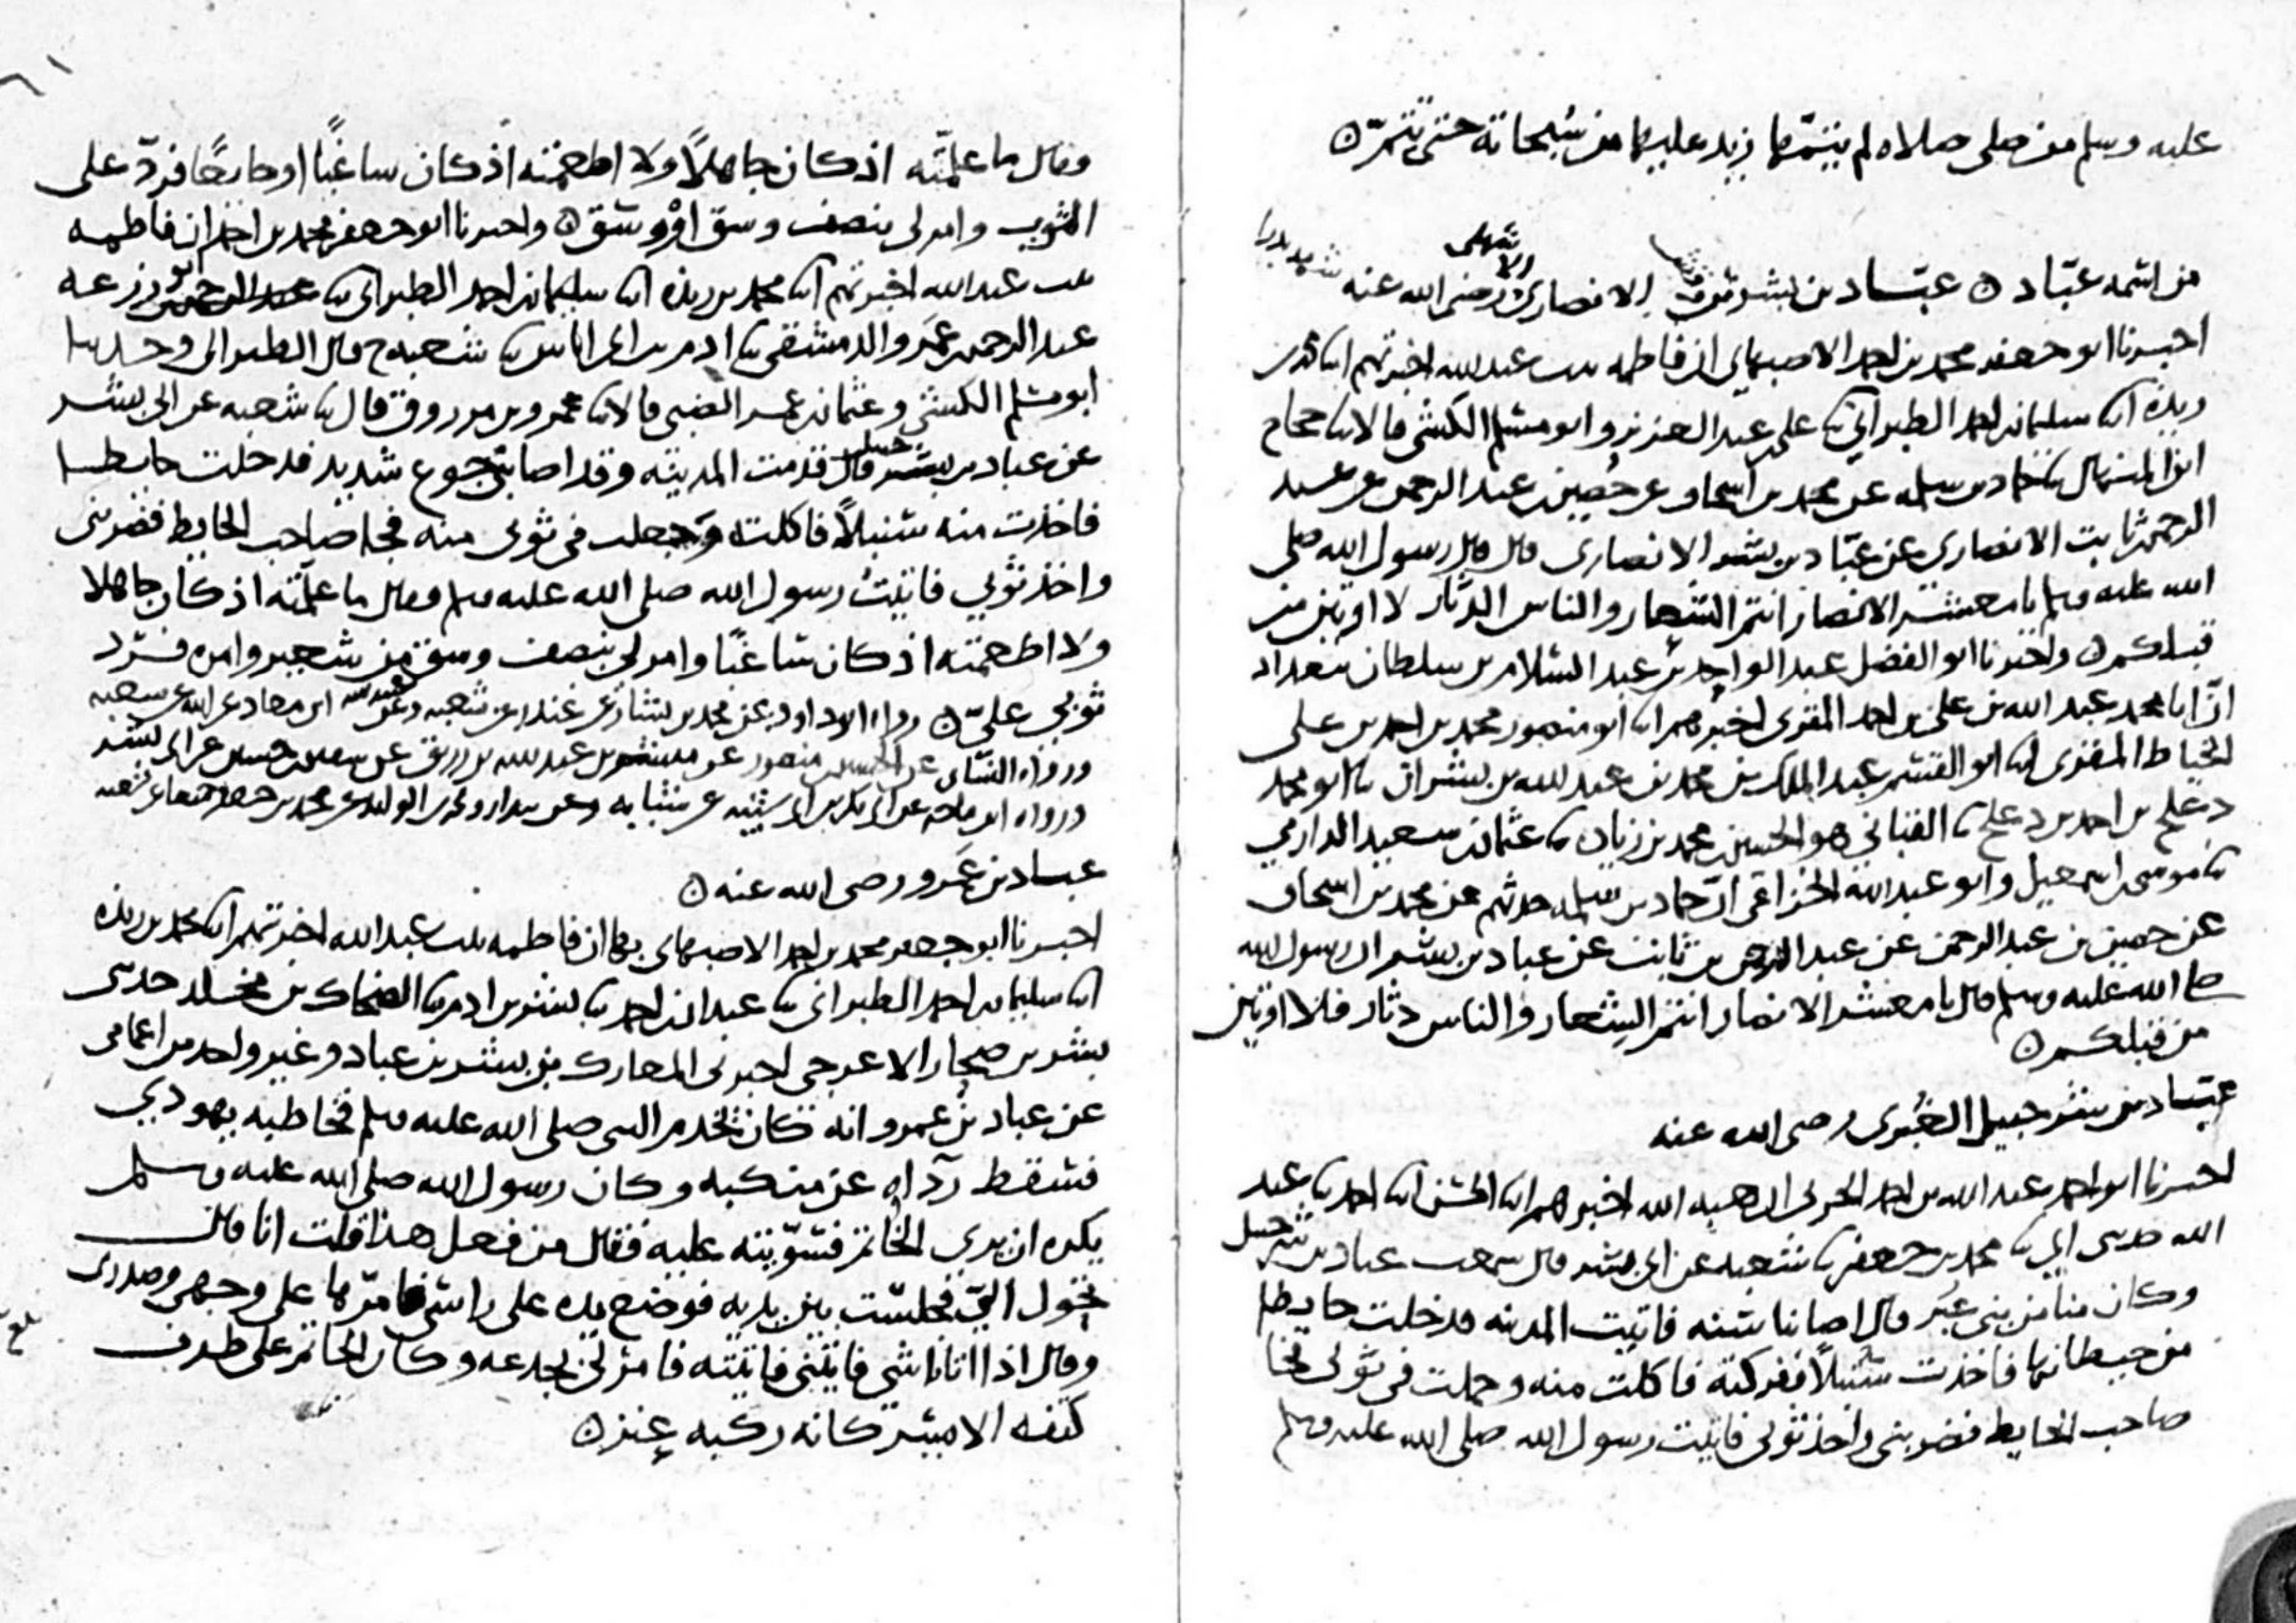 عليه وسلم من صلى صلاه لم يتمها زيد عليها من سبحاته حتى تتم
من اسمه عباد عباد بن بشر بن وقش الانصاري الاشهلي رضي الله عنه شهد بدرا
اخبرنا ابو جعفر محمد بن احمد الاصبهاني ان فاطمه بنت عبد الله اخبرتهم ابنا محمد بن
ريذه ابنا سليمان بن احمد الطبراني ثنا علي بن عبد العزيز وابو مسلم الكشي قالا ثنا حجاج
ابن المنهال ثنا حماد بن سلمه عن محمد بن اسحاق عن حصين بن عبد الرحمن عن عبد
الرحمن بن ثابت الانصاري عن عباد بن بشر الانصاري قال قال رسول الله صلى
الله عليه وسلم يا معشر الانصار انتم الشعار والناس الدثار لا اوتين من
قبلكم واخبرنا ابو الفضل عبد الواحد بن عبد السلام بن سلطان ببغداد
ان ابا محمد عبد الله بن علي بن احمد المقري اخبرهم ابنا ابو منصور محمد بن احمد بن علي
الخياط المقري ابنا ابو القسم عبد الملك بن محمد بن عبد الله بن بشران ثنا ابو محمد
دعلج بن احمد بن دعلج ثنا القباني هو الحسين بن محمد بن زياد ثنا عثمان بن سعيد الدارمي
ثنا موسى بن اسمعيل وابو عبد الله الخزاعي ان حماد بن سلمه حدثهم عن محمد بن اسحاق
عن حصين بن عبد الرحمن عن عبد الرحمن بن ثابت عن عباد بن بشر ان رسول الله
صلى الله عليه وسلم قال يا معشر الانصار انتم الشعار والناس دثار فلا اوتين
من قبلكم
عباد بن شرحبيل الغبري رضي الله عنه
اخبرنا ابو احمد عبد الله بن احمد الحربي ان هبه الله اخبرهم ابنا الحسن ابنا احمد ثنا عبد
الله حدثني ابي ثنا محمد بن جعفر ثنا شعبه عن ابي بشر قال سمعت عباد بن شرحبيل
وكان منا من بني غبر قال اصابنا سنه فاتيت المدينه فدخلت حايطا
من حيطانها فاخذت سنبلا ففركته فاكلت منه وحملت في ثوبي فجا
صاحب الحايط فضربني واخذ ثوبي فاتيت رسول الله صلى الله عليه وسلم
وقال ما علمته اذ كان جاهلا ولا اطعمته اذ كان ساغبا او جايعا فرد علي
الثوب وامر لي بنصف وسق او وسق واخبرنا ابو جعفر محمد بن احمد ان فاطمه
بنت عبد الله اخبرتهم ابنا محمد بن ريذه ابنا سليمان بن احمد الطبراني ثنا ابو زرعه
عبد الرحمن بن عمرو الدمشقي ثنا ادم بن ابي اياس ثنا شعبه ح قال الطبراني وحدثنا
ابو مسلم الكشي وعثمان بن عمر الضبي قالا ثنا عمرو بن مرزوق قال ثنا شعبه عن ابي بشر
عن عباد بن شرحبيل قال قدمت المدينه وقد اصابني جوع شديد فدخلت حايطا
فاخذت منه سنبلا فاكلت وجعلت في ثوبي منه فجا صاحب الحايط فضربني
واخذ ثوبي فاتيت رسول الله صلى الله عليه وسلم وقال ما علمته اذ كان جاهلا
ولا اطعمته اذ كان ساغبا وامر لي بنصف وسق من شعير وامره فرد
ثوبي علي رواه ابو داود عن محمد بن بشار عن غندر عن شعبه وعن عبيد الله ابن معاذ عن ابيه عن شعبه
ورواه النساي عن الحسين بن منصور عن مبشر بن عبد الله بن رزين عن سفين بن حسين عن ابي بشر
ورواه ابن ماجه عن ابي بكر بن ابي شيبه عن شبابه وعن بندار ومحمد بن الوليد عن محمد بن جعفر جميعا عن شعبه
عباد بن عمرو رضي الله عنه
اخبرنا ابو جعفر محمد بن احمد الاصبهاني بها ان فاطمه بنت عبد الله اخبرتهم ابنا محمد بن ريذه
ابنا سليمان بن احمد الطبراني ثنا عبدان بن احمد ثنا بشر بن ادم ثنا الضحاك بن مخلد حدثني
بشر بن صحار الاعرجي اخبرني المعارك بن بشر بن عباد وغير واحد من اعمامي
عن عباد بن عمرو انه كان يخدم النبي صلى الله عليه وسلم فخاطبه يهودي
فسقط رداه عن منكبه وكان رسول الله صلى الله عليه وسلم
يكره ان يرى الخاتم فسويته عليه فقال من فعل هذا قلت انا قال
تحول الي فجلست بين يديه فوضع يده على راسي فامرها على وجهي وصدري
وقال اذا اتانا شي فاتني فاتيته فامر لي بجدعه وكان الخاتم على طرف
كتفه الايسر كانه ركبه عنز